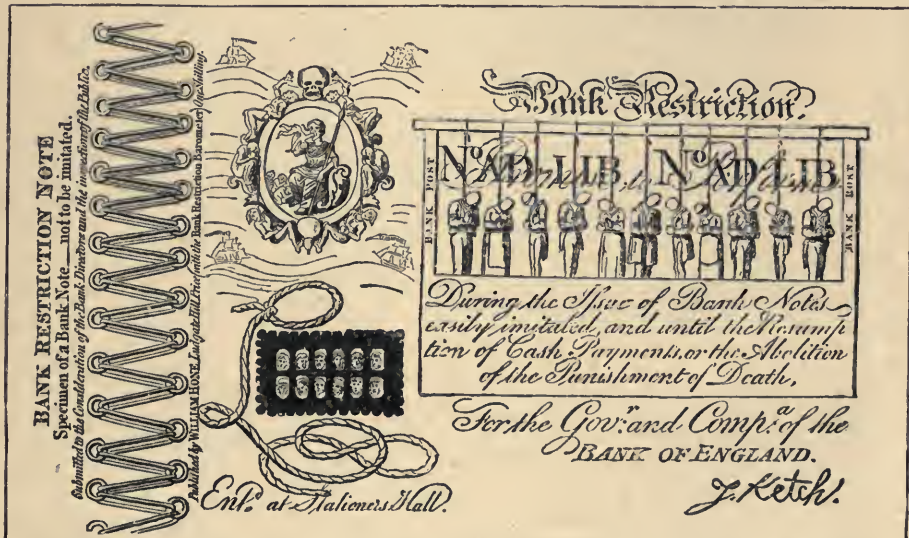 BANK RESTRICTION NOTE
Specimen of a Bank Note__not to be imitated.
Submitted to the Consideration of the Bank Directors and the inspection of the Public.
Published by WILLIAM HONE, Ludgate Hill, Price (with the Bank Restriction Barometer) One Shilling.
Bank Restriction.
BANK POST
No. AD. LIB No. AD. LIB
BANK POST
During the Issue of Bank Notes
easily imitated, and until the Resump
tion of Cash Payments, or the Abolition
of the Punishment of Death,
For the Govr. and Compa. of the
BANK OF ENGLAND.
J. Ketch.
Entd. at Stationers Hall.